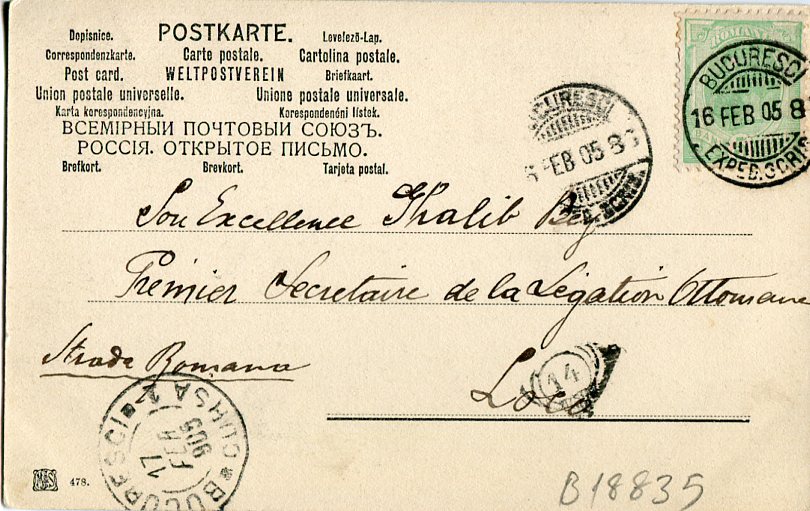 Dopisnice. POSTKARTE. Levelező-Lap.
Correspondenzkarte. Carte postale. Cartolina postale.
Post card. WELTPOSTVEREIN Briefkaart.
Union postale universelle. Unione postale universale.
Karta korespondencyjna. Korespondenéni lístek.
ВСЕМІРНЫЙ ПОЧТОВЫЙ СОЮЗЪ.
РОССІЯ. ОТКРЫТОЕ ПИСЬМО.
Brefkort. Brevkort. Tarjeta postal.
ROMANIA
BUCURESCI
16 FEB 05 8
EXPED. CORIS
BUCURESCI
FEB 05 8
CORIS
Son Excellence Ghalib Bey
Premier Secretaire de la Légation Ottomane
Strada Romana
Loco
14
BUCURESCI
CURSA 1
17
FEB
905
478.
B18835